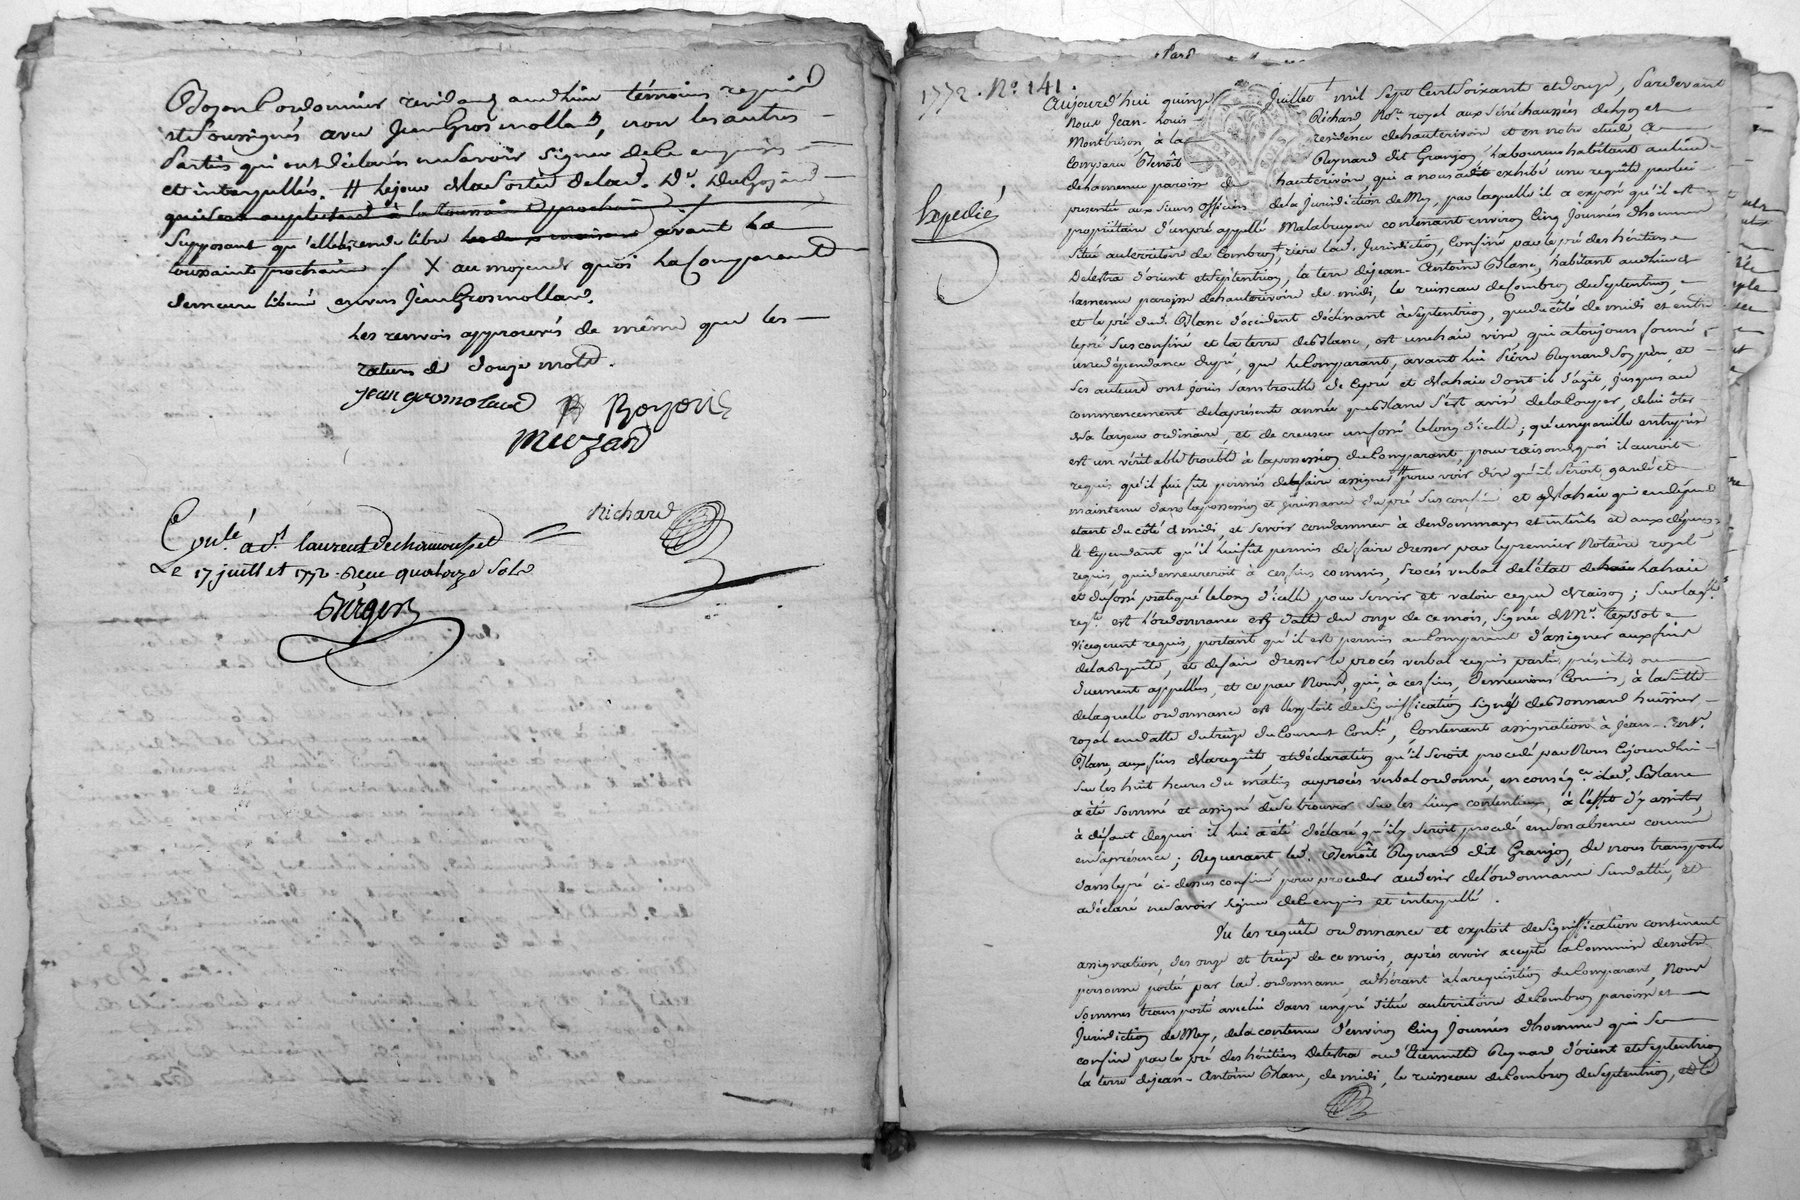 Cordonnier résid aud lieu témoins requis
et soussignés avec Jean Grosmollard, non les autres
parties qui ont déclaré ne savoir signer de ce enquises
et interpellés. # le jour de la sortie de lad. De.
qui sera
supposant qu'elle rende libre avant la
toussaint prochaine / X au moyen de quoi la Comparent
demeure libéré envers Jean Grosmollard.
Les renvois approuvés de même que les
ratures de douze mots.
Jean grosmolard Boyer
Meuzard
Richard
Conlé. à St. laurent de chamousset
Le 17 juillet 1772. Reçu quatorze sols
1772. No. 141.
Expedié
Aujourd'hui quinze juillet mil sept cent soixante et douze, Pardevant
Nous Jean-Louis Richard Nore. royal aux sénéchaussées de Lyon et
Montbrison, à la résidence de hauterivoire et en notre étude, a
Comparu Benoît Reynard dit Granjon, laboureur habitant au lieu
de la même paroisse de hauterivoire, qui a nous a dit exhibé une requête par lui
présentée aux sieurs officiers de la Jurisdiction de Mey, par laquelle il a exposé qu'il est
propriétaire d'un pré appellé contenant environ cinq journées d'homme
situé au territoire de Combron, rière lad. Jurisdiction, confiné par le pré des héritiers
Delestra d'orient et septentrion, la terre de Jean-Antoine Blanc, habitant aud lieu et
la même paroisse de hauterivoire de midi, le ruisseau de Combron de septentrion,
et le pré dud. Blanc d'occident déclinant à septentrion, que du côté de midi et entre
le pré sus confiné et la terre de Blanc, est une haie vive, qui a toujours formé
une dépendance du pré, que le Comparant, avant lui Pierre Reynard son père, et
ses auteurs ont joui sans trouble de ce pré et de la haie dont il s'agit, jusques au
commencement de la présente année que Blanc s'est avisé de la couper, de lui ôter
sa largeur ordinaire, et de creuser un fossé le long d'icelle; qu'une pareille entreprise
est un véritable trouble à la possession du Comparant, pour raison de quoi il auroit
requis qu'il lui fût permis de faire assigner pour voir dire qu'il seroit gardé et
maintenu dans la possession et jouissance du pré sus confiné et de la haie qui en dépend
étant du côté de midi, et se voir condamner à des dommages et intérêts et aux dépens
et cependant qu'il lui fût permis de faire dresser par le premier Notaire royal
requis, qui demeureroit à ces fins commis, Procès verbal de l'état de la haie
et du fossé pratiqué le long d'icelle pour servir et valoir ce que de raison; sur laqle.
reqte. est l'ordonnance en datte du onze de ce mois, signée de Mr.
Vicegerent requis, portant qu'il est permis au Comparant d'assigner aux fins
de la Requête, et de faire dresser le procès verbal requis parties présentes ou
duement appellés, et ce par Nous, qui, à ces fins, demeurions commis, à la suite
de laquelle ordonnance est l'exploit de signiffication signé de Bonnard huissier
royal en datte du treize du courant Conlé, contenant assignation à Jean-Antne.
Blanc, aux fins de la requête, et déclaration qu'il seroit procédé par Nous cejourd'hui
sur les huit heures du matin au procès verbal ordonné, en conséqce. led. Blanc
a été sommé et assigné de se trouver sur les lieux contentieux, à l'effet d'y assister,
à défaut de quoi il lui a été déclaré qu'il y seroit procédé en son absence comme
en sa présence; Requerant led. Benoît Reynard dit Granjon, de nous transporter
dans le pré ci-dessus confiné pour procéder au desir de l'ordonnance susdattée, et
a déclaré ne savoir signer de ce enquis et interpellé.
Vu les requête ordonnance et exploit de signiffication contenant
assignation, des onze et treize de ce mois, après avoir accepté la Commission de notre
personne portée par lad. ordonnance, adhérant à la requisition du Comparant, Nous
sommes transporté avec lui dans un pré situé au territoire de Combron paroisse et
Jurisdiction de Mey, de la contenue d'environ cinq journées d'homme qui se
confine par le pré des héritiers Delestra ou d'Etiennette Reynard d'orient et septentrion
la terre de Jean-Antoine Blanc, de midi, le ruisseau de Combron de septentrion, et le